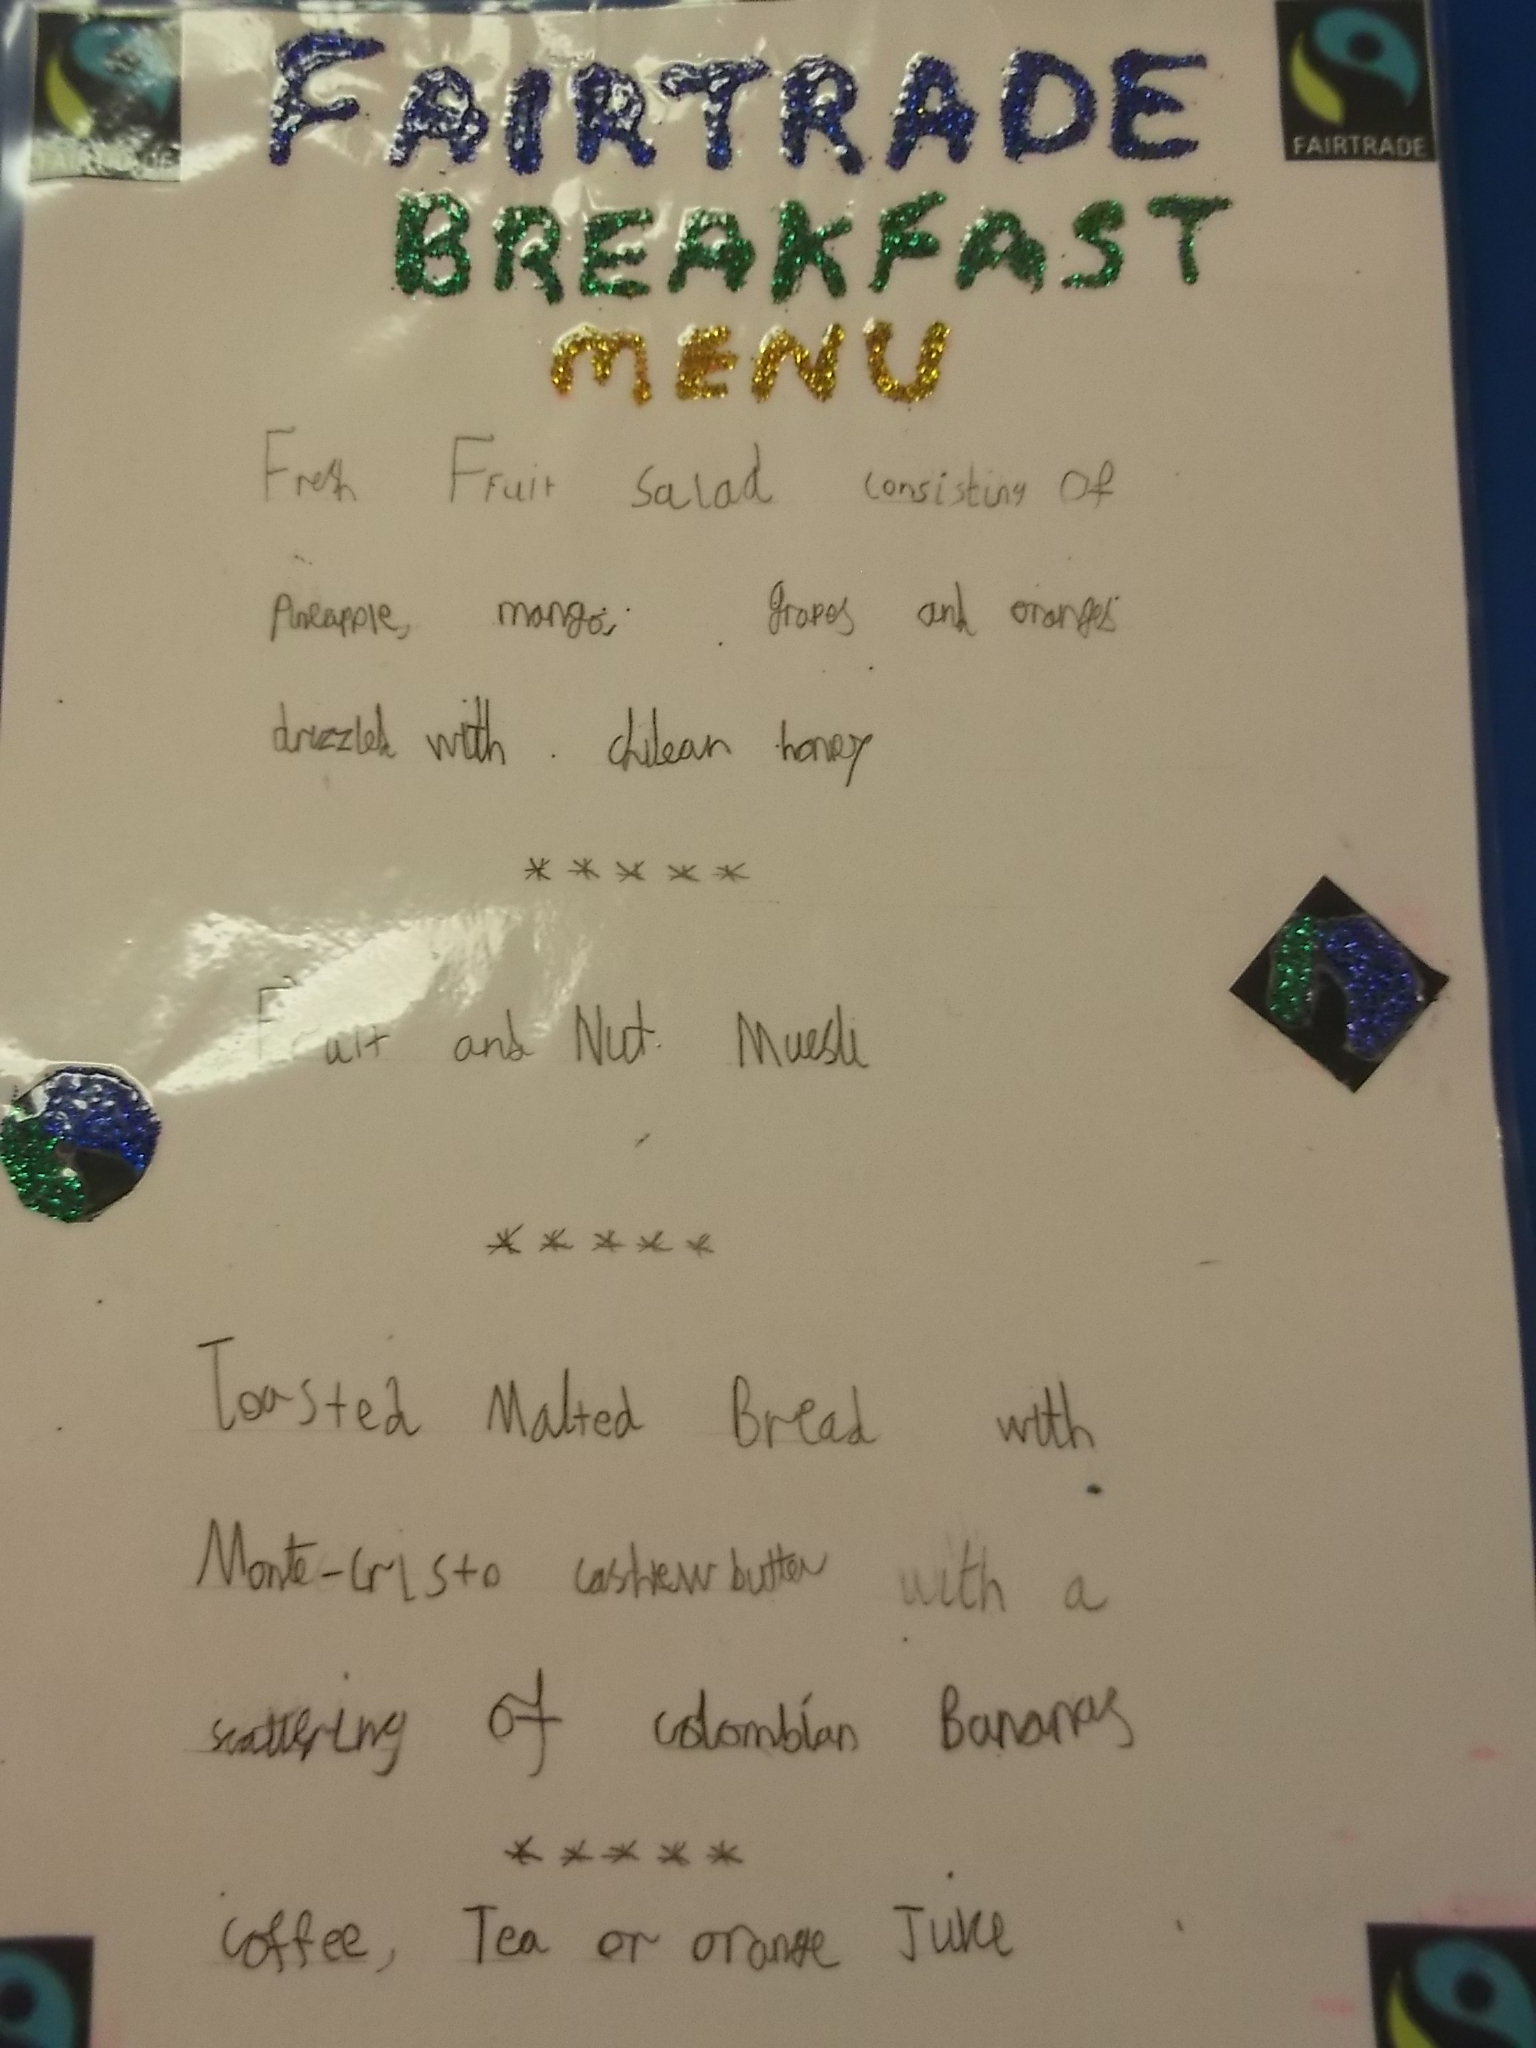 FAIRTRADE
FAIRTRADE
FAIRTRADE
BREAKFAST
MENU
Fresh Fruit Salad consisting Of
Pineapple, mango, grapes and oranges
drizzled with chilean honey
*****
Fruit and Nut Muesli
*****
Toasted Malted Bread with
Monte-Cristo cashew butter with a
scattering of colombian Bananas
*****
coffee, Tea or orange Juice